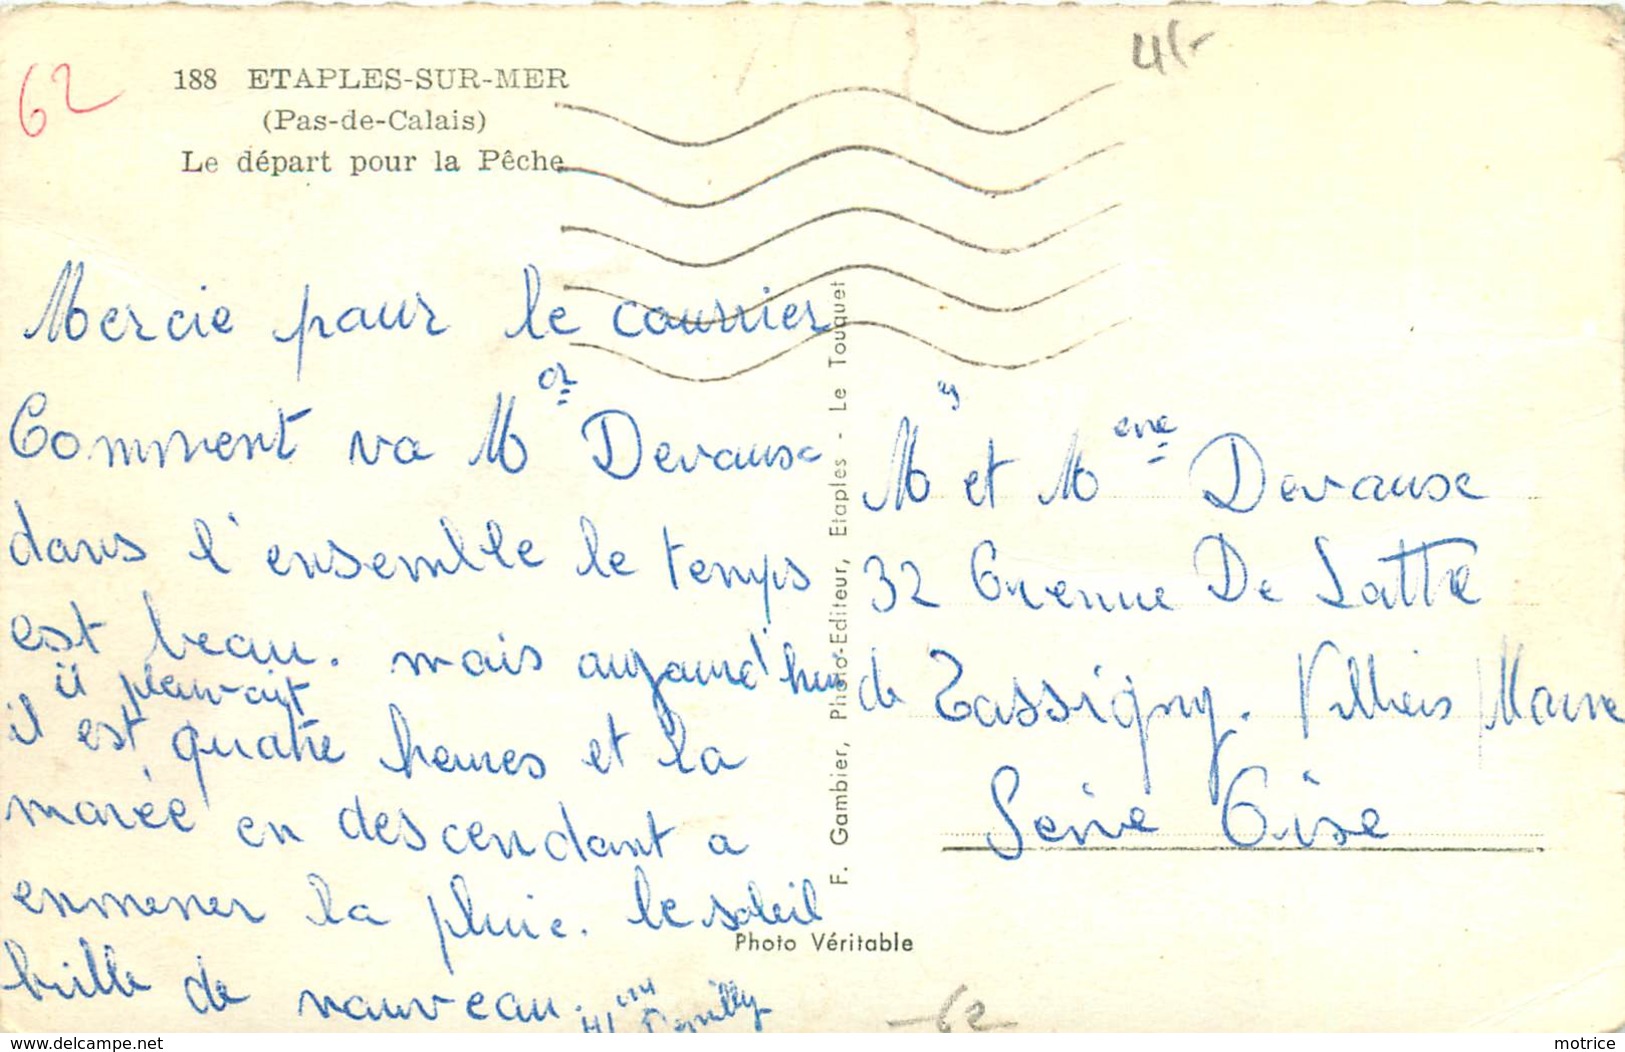 62
188 ETAPLES-SUR-MER
(Pas-de-Calais)
Le départ pour la Pêche
Mercie pour le courrier
Comment va Mr Devause
dans l'ensemble le temps
est beau. mais aujourd'hui
il pleuvait
il est quatre heures et la
marée en descendant a
enmener la pluie. le soleil
brille de nouveau.
F. Gambier, Photo-Editeur, Etaples - Le Touquet
Photo Véritable
M et Mme Devause
32 Avenue De Latte
de Tassigny. Villiers / Marne
Seine Oise
62
delcampe.net
motrice